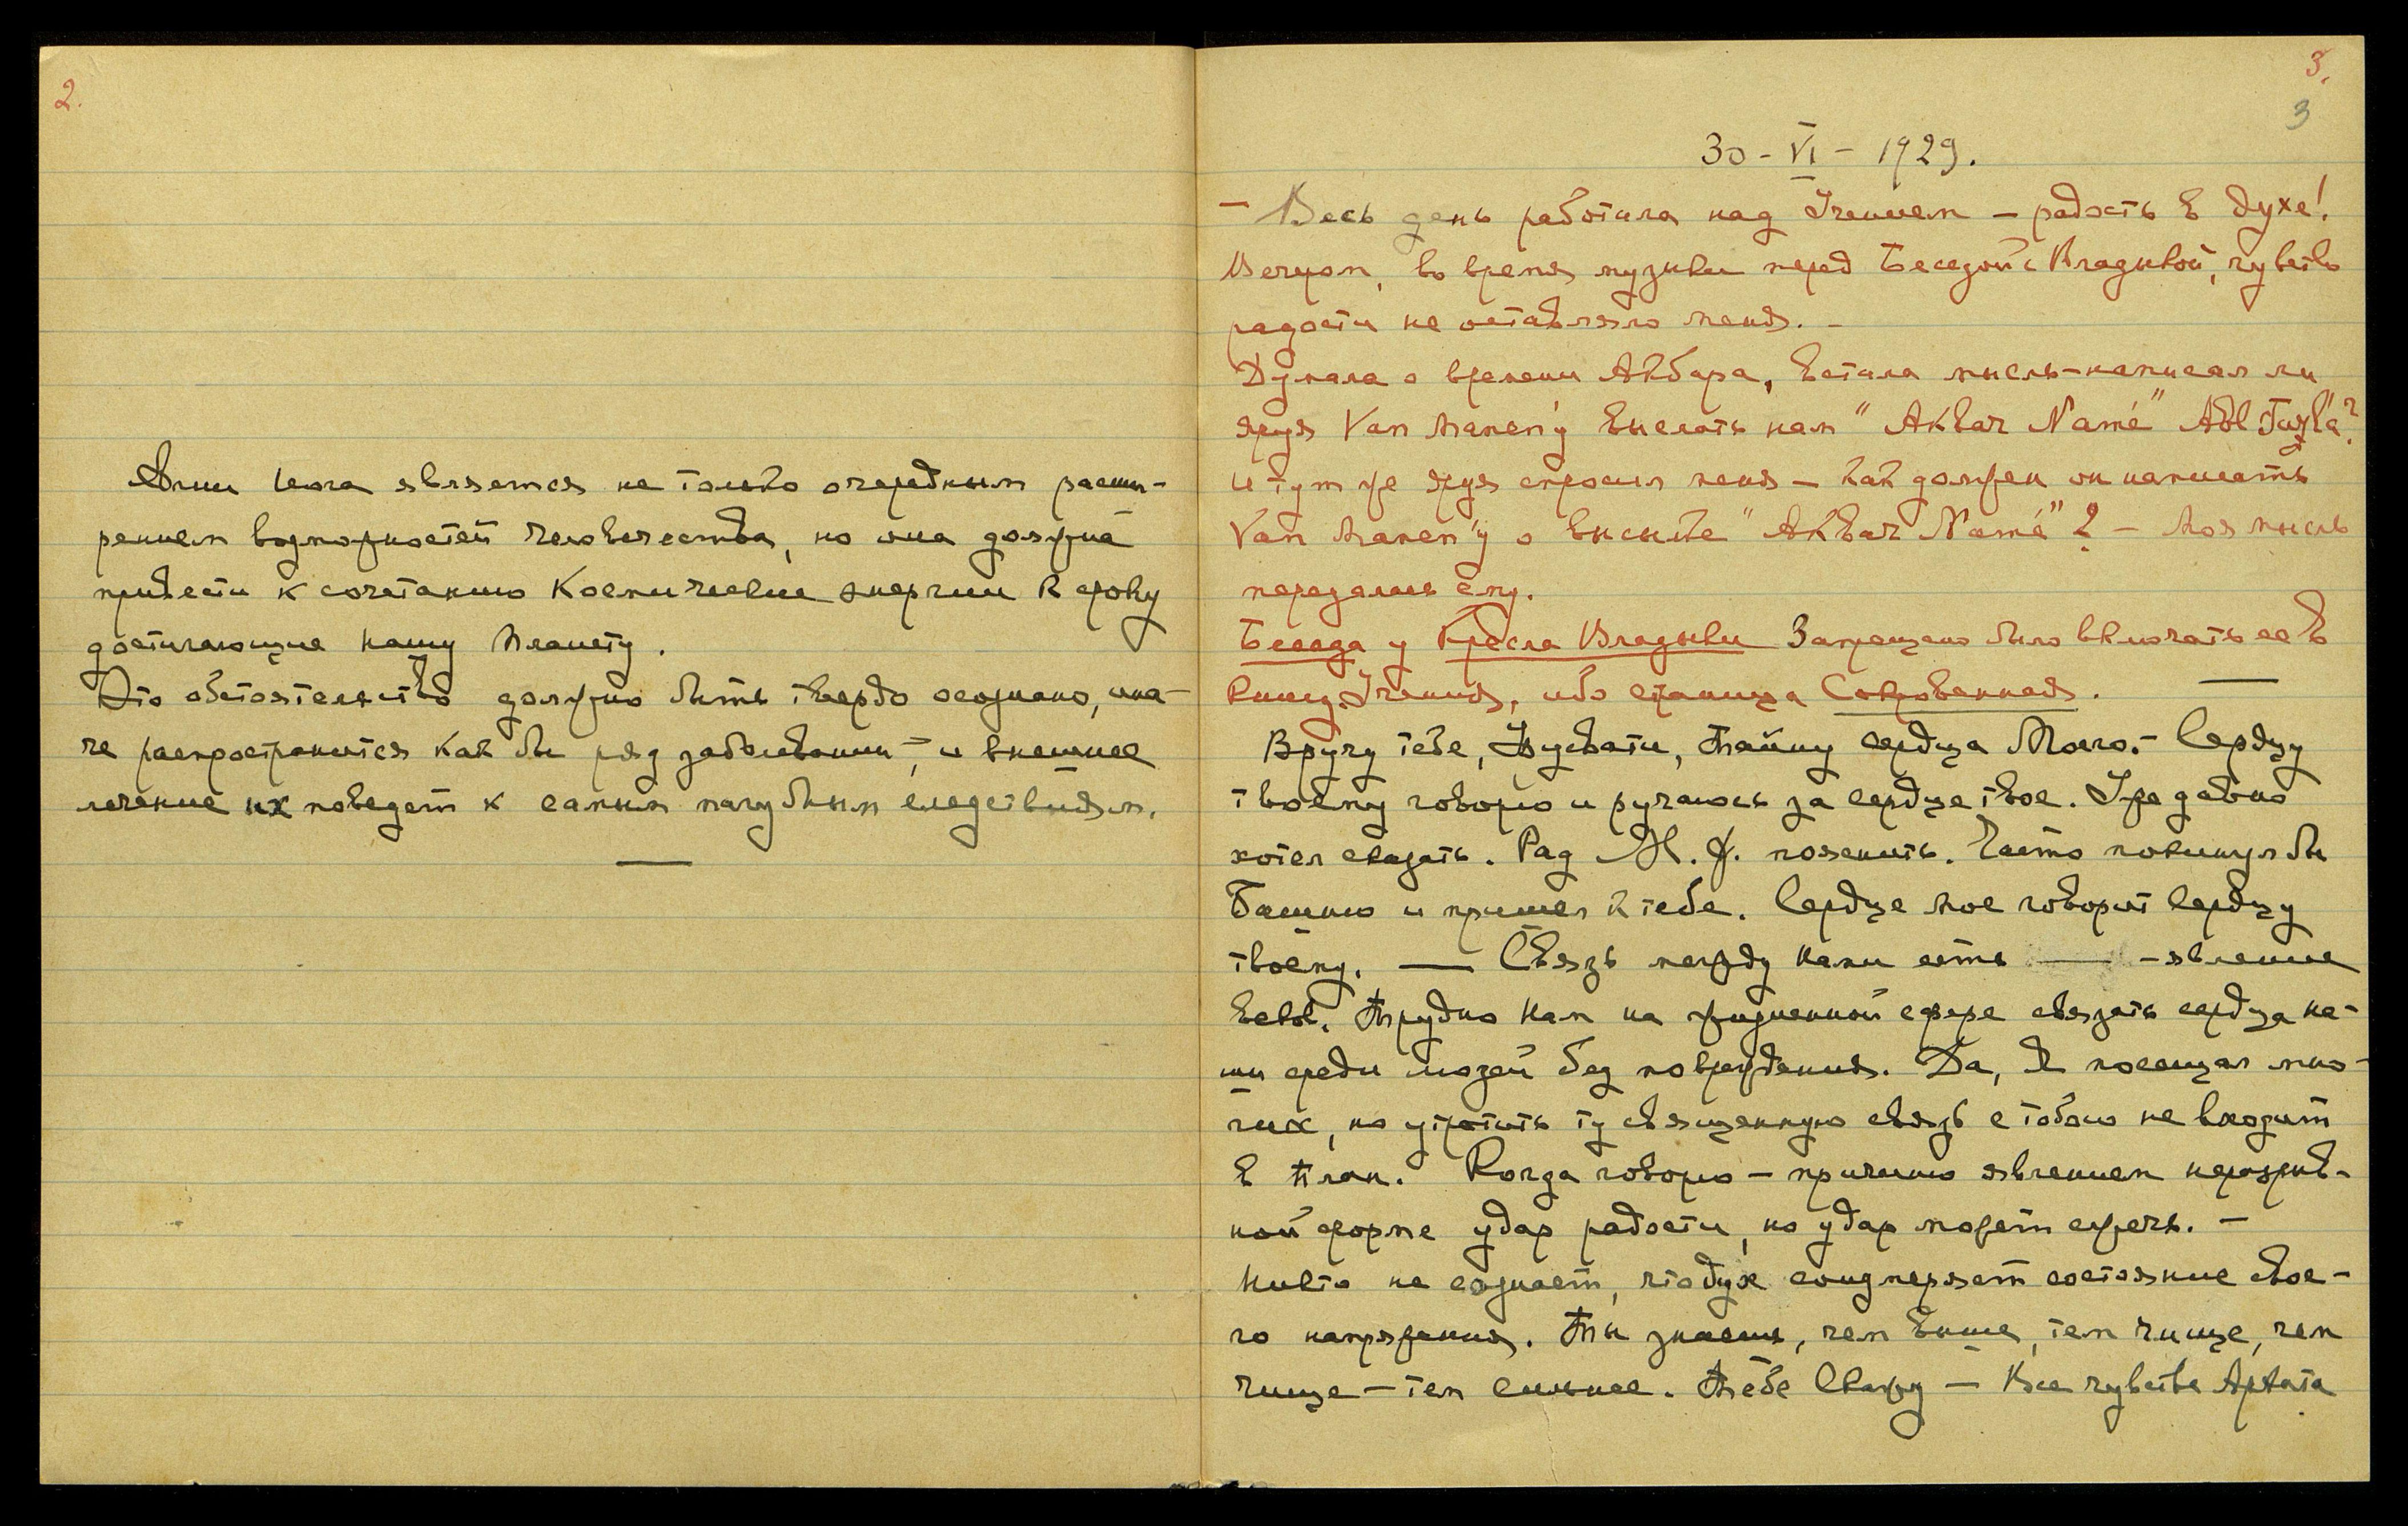 2.
Агни Йога является не только очередным расши-
рением возможностей человечества, но она должна
привести к сочетанию Космические энергии к сроку
достигающие нашу планету.
Это обстоятельство должно быть твердо осознано, ина-
че распространится как бы ряд заболеваний, и внешнее
лечение их поведет к самым пагубным следствиям.
3.
3
30 - VI - 1929.
— Весь день работала над Учением — радость в духе!
Вечером, во время музыки перед Беседой с Владыкой, чувство
радости не оставляло меня. —
Думала о времени Акбара, встала мысль - написал ли
Van Manen'у выслать нам "Akbar Namé"
и тут же спросил меня — как должен он написать
Van Manen'у о высылке "Akbar Namé"? — Моя мысль
передалась ему.
Беседа у Кресла Владыки Запрещено было включать ее в
Книгу Учения, ибо страница Сокровенная.
Вручу тебе, Урусвати, тайну сердца Моего. — Сердцу
твоему говорю и ручаюсь за сердце твое. Уже давно
хотел сказать. Рад М. пояснить. Часто покинул бы
Башню и пришел к тебе. Сердце мое говорит сердцу
твоему. — Связь между нами есть — - явление
веков. Трудно нам на жизненной сфере связать сердца на-
ши среди людей без повреждения. Да, Я посещал мно-
гих, но утратить ту священную связь с тобою не входит
в план. Когда говорю — причиню явлением неразрыв-
ной форме удар радости, но удар может сжечь. —
Никто не сознает, что дух соизмеряет состояние свое-
го напряжения. Ты знаешь, чем выше, тем чище, чем
чище — тем сильнее. Тебе Скажу — Все чувства Архата